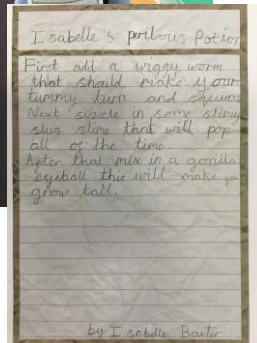 Isabelle's perilous Potion
First add a wiggy worm
that should make your
tummy turn and squirm
Next sizzle in some slimy
slug slime that will pop
all of the time.
After that mix in a gorilla
eyeball this will make you
grow tall.
by Isabelle Baxter